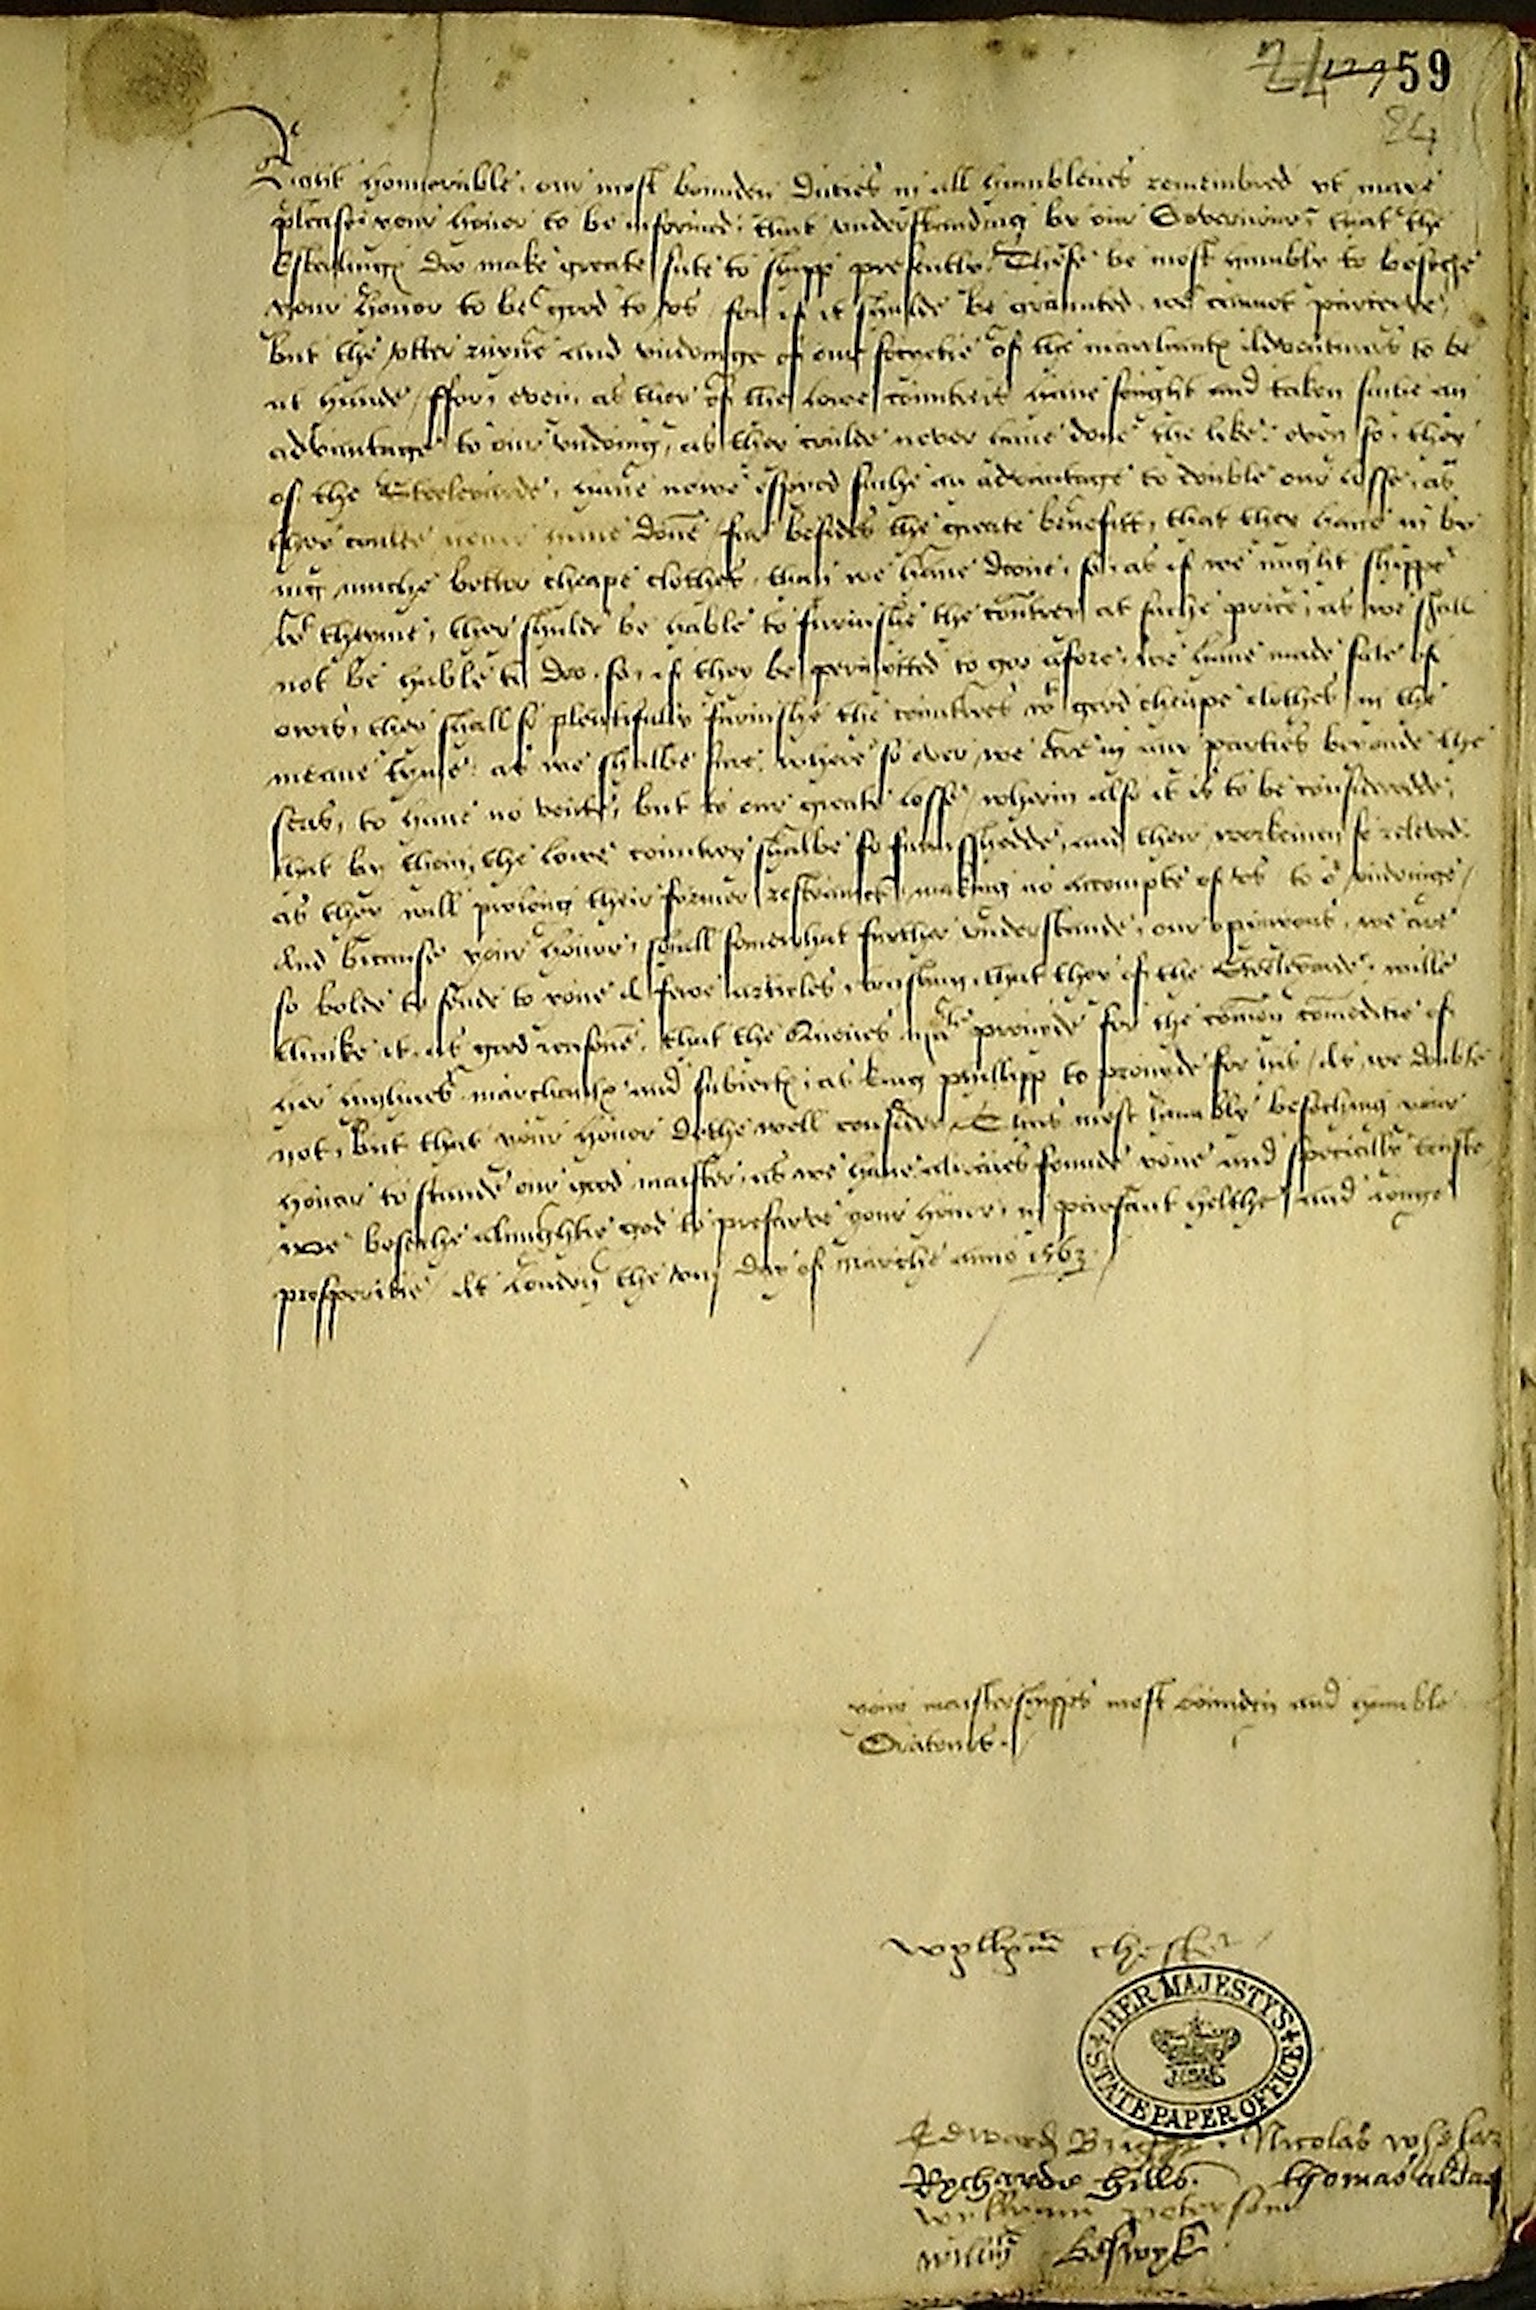 59
24
Right honnorable, our most bounden duties in all humblenes remembred yt maye
please your honor to be informed, that understanding by our Governour, that the
Esterlings doo make greate sute to shipp presentlye. These be most humble to beseche
your honor to be good to us, for if it shulde be graunted, we cannot parceive,
but the utter ruyne and undoinge of our socyetie of the marchants adventurers to be
at hande, ffor, even as they of the lowe countreis have sought and taken suche an
advantage to our undoing, as they coulde never have done the like: even so, they
of the Steeleyarde, have nowe espied suche an advantage to double our losse, as
they coulde never have done, for besides the greate benefitt, that they have in by
ing muche better cheape clothes, than we have doone, so, as if we might shippe
wt theyme, they shulde be hable to furnishe the contrey at suche price, as we shall
not be hable to doo, so, if they be permytted to goo afore, we have made sale of
owrs, they shall so plentifully furnishe the countres wt good cheape clothes in the
meane tyme: as we shalbe sure, where so ever, we are in any parties beyonde the
seas, to have no vente, but to our greate losse, wherin also it is to be considered,
that by them, the lowe countrey shalbe so furnisshedde, and their workemen so releved,
as they will prolong their former restraintes, making no accompte of us, to or undoinge,
And bicause your honor, shall somewhat further understande, our opinions, we are
so bolde to sende to youe a fewe articles, trusting, that they of the Steeleyarde, wille
thinke it, as good reasone, that the Quenes matie provide for the comon comoditie of
her highnes marchants and subiects, as king phillipp to provyde for his, As, we doubte
not, but that your honor dothe well consider, Thus most humbly beseching your
honor to stande our good maister, as we have alwaies founde youe and speciallie truste
we beseche almightie god to preserve your honor, in parfaict helthe, and longe
prosperitie, At London the day of Marche anno 1563.
your maistershippes most bounden and humble
Oratours.
wyllyam chester
HER MAJESTY'S
STATE PAPER OFFICE
Edward Nicolas
Rycharde hills. thomas
wyllyam peterson
willm beswyk